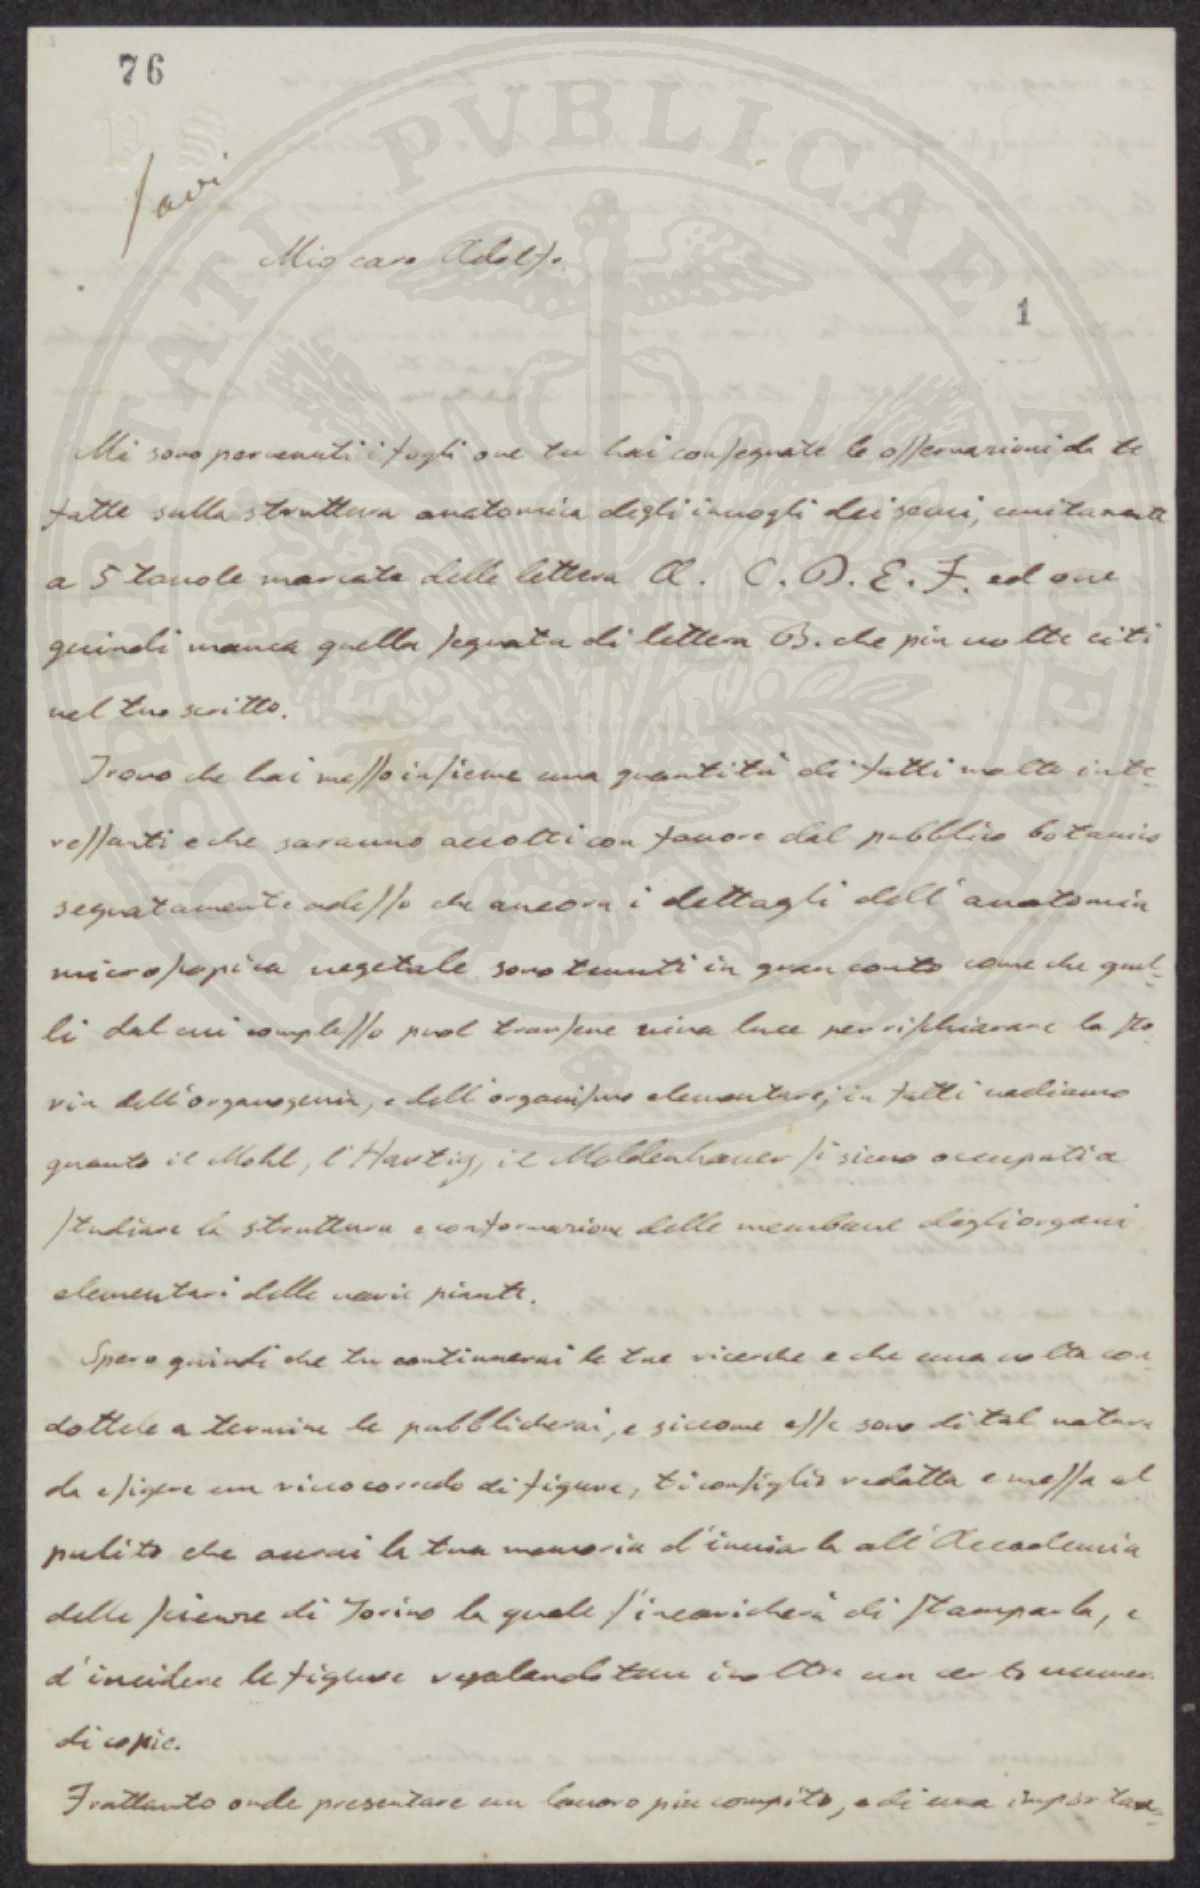 76
Savi
Mio caro Adolfo.
1
Mi sono pervenuti i fogli ove tu hai consegnate le osservazioni da te
fatte sulla struttura anatomica degli invogli dei semi, unitamente
a 5 tavole marcate delle lettera A. C. D. E. F. ed ove
quindi manca quella segnata di lettera B. che più volte citi
nel tuo scritto.
Trovo che hai messo insieme una quantità di fatti molto inte-
ressanti e che saranno accolti con favore dal pubblico botanico
segnatamente adesso che ancora i dettagli dell'anatomia
microscopica vegetale sono tenuti in gran conto come che quel-
li dal cui complesso puol trarsene viva luce per rischiarare la sto-
ria dell'organogenia, e dell'organismo elementare; in fatti vediamo
quanto il Mohl, l'Hartig, il Moldenhauer si sieno occupati a
studiare la struttura e conformazione delle membane degli organi
elementari delle varie piante.
Spero quindi che tu continuerai le tue ricerche e che una volta con-
dottele a termine le pubblicherai, e siccome esse sono di tal natura
da esigere un ricco corredo di figure, ti consiglio redatta e messa al
pulito che avrai la tua memoria d'inviarla all'Accademia
delle scienze di Torino la quale s'incaricherà di stamparla, e
d'incidere le figure regalandotene inoltre un certo numero
di copie.
Frattanto onde presentare un lavoro più compito, e di una importan-
PROSPERITATI PUBLICAE AUGENDAE